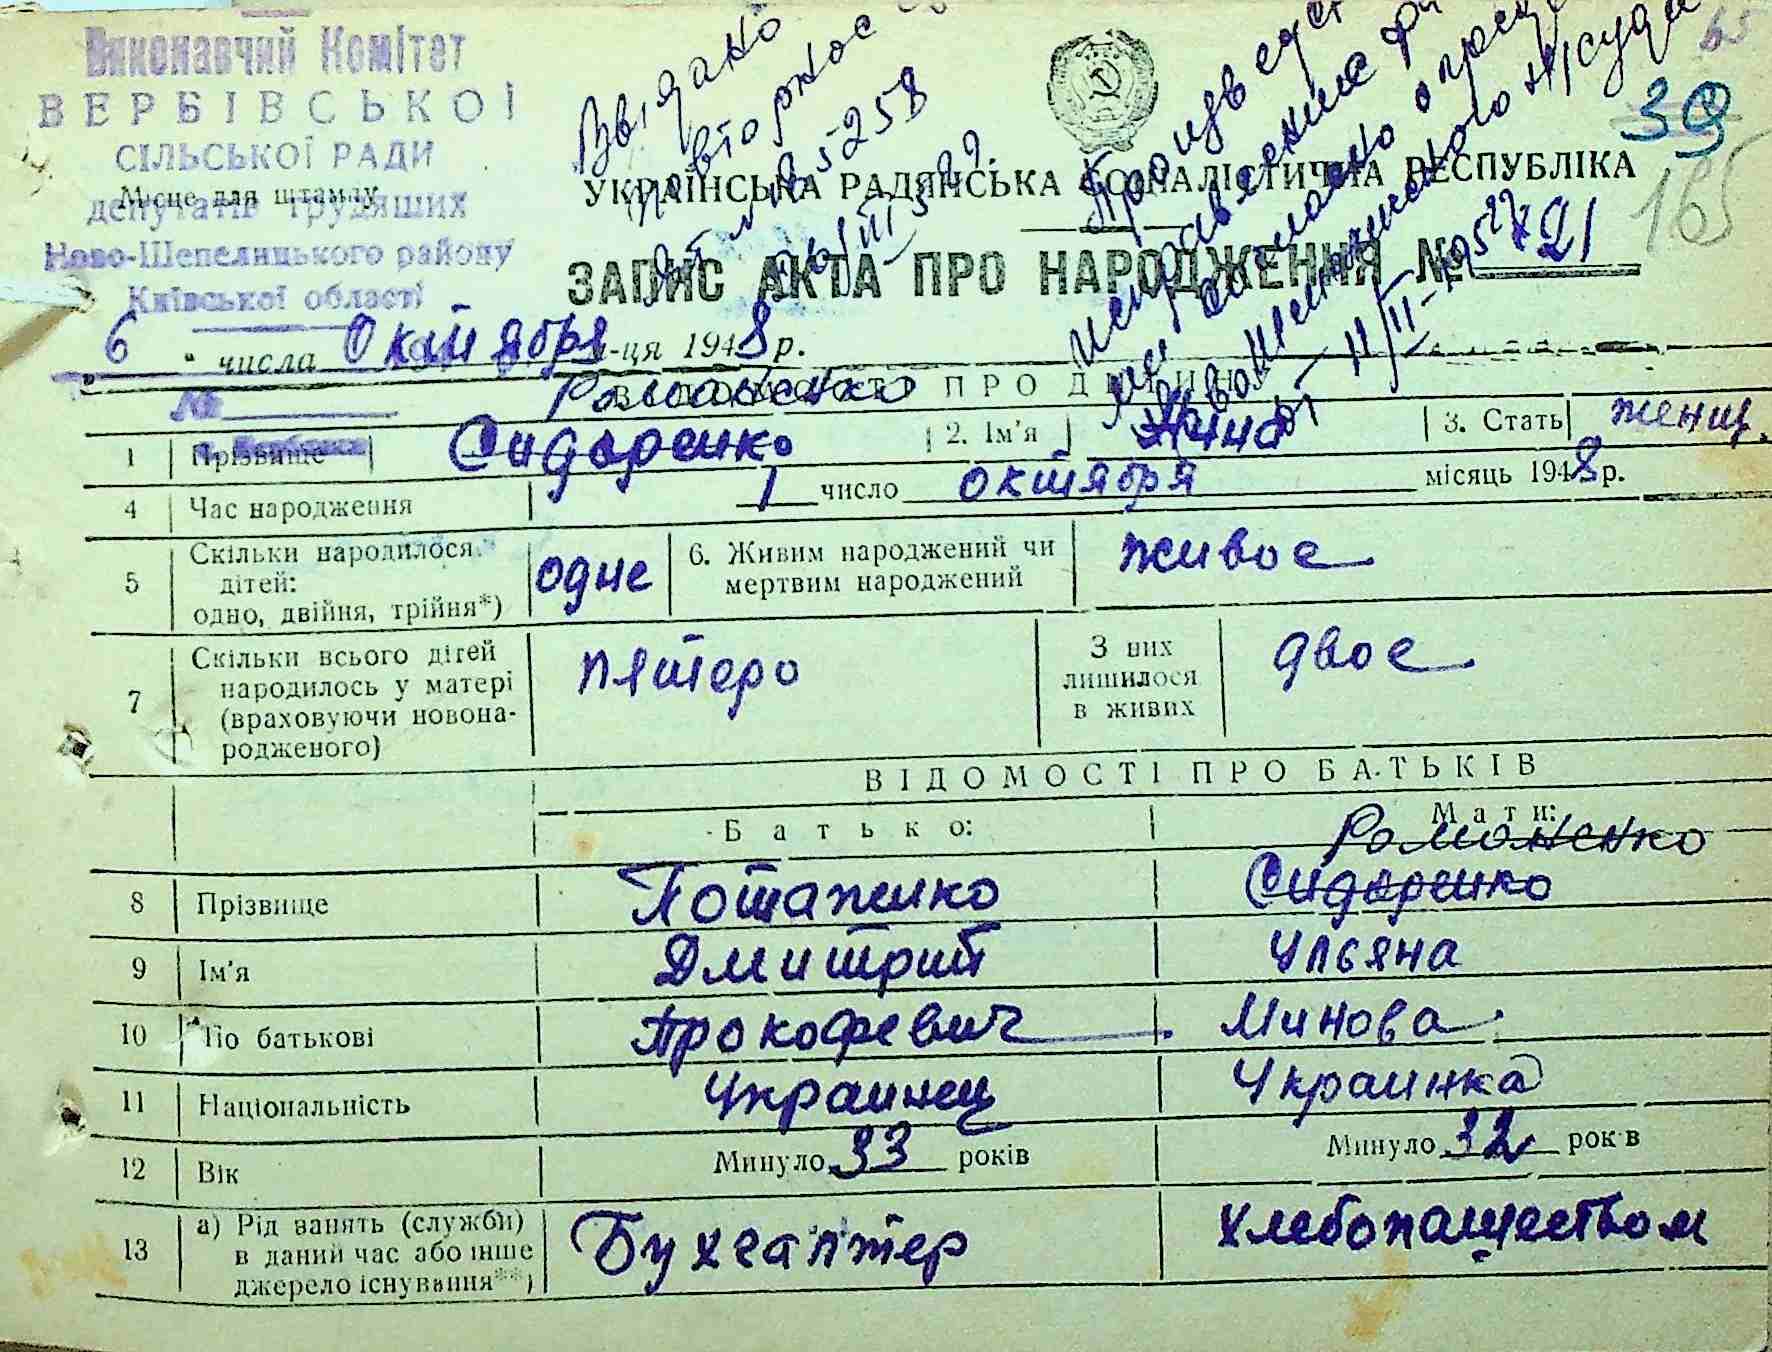 Виконавчий Комітет
ВЕРБІВСЬКОЇ
СІЛЬСЬКОЇ РАДИ
Місце для штампу
депутатів трудящих
Ново-Шепелицького району
Київської області
№
Видано
повторное
5258
39
165
65
УКРАЇНСЬКА РАДЯНСЬКА СОЦІАЛІСТИЧНА РЕСПУБЛІКА
ЗАПИС АКТА ПРО НАРОДЖЕННЯ № 21
6 " числа Октября м-ця 1948 р.
ВІДОМОСТІ ПРО ДИТИНУ
Романенко
1 Прізвище Сидоренко 2. Ім'я Нина 3. Стать женщ.
4 Час народження 1 число октября місяць 1948 р.
5 Скільки народилося дітей: одно, двійня, трійня*) одне 6. Живим народжений чи мертвим народжений живое
7 Скільки всього дітей народилось у матері (враховуючи новонародженого) пятеро З них лишилося в живих двое
ВІДОМОСТІ ПРО БАТЬКІВ
Батько: Мати:
Романенко
8 Прізвище Потапенко Сидоренко
9 Ім'я Дмитрий Ульяна
10 По батькові Прокофевич Минова
11 Національність Украинец Украинка
12 Вік Минуло 33 років Минуло 32 років
13 а) Рід занять (служби) в даний час або інше джерело існування**) Бухгалтер хлебопашеством